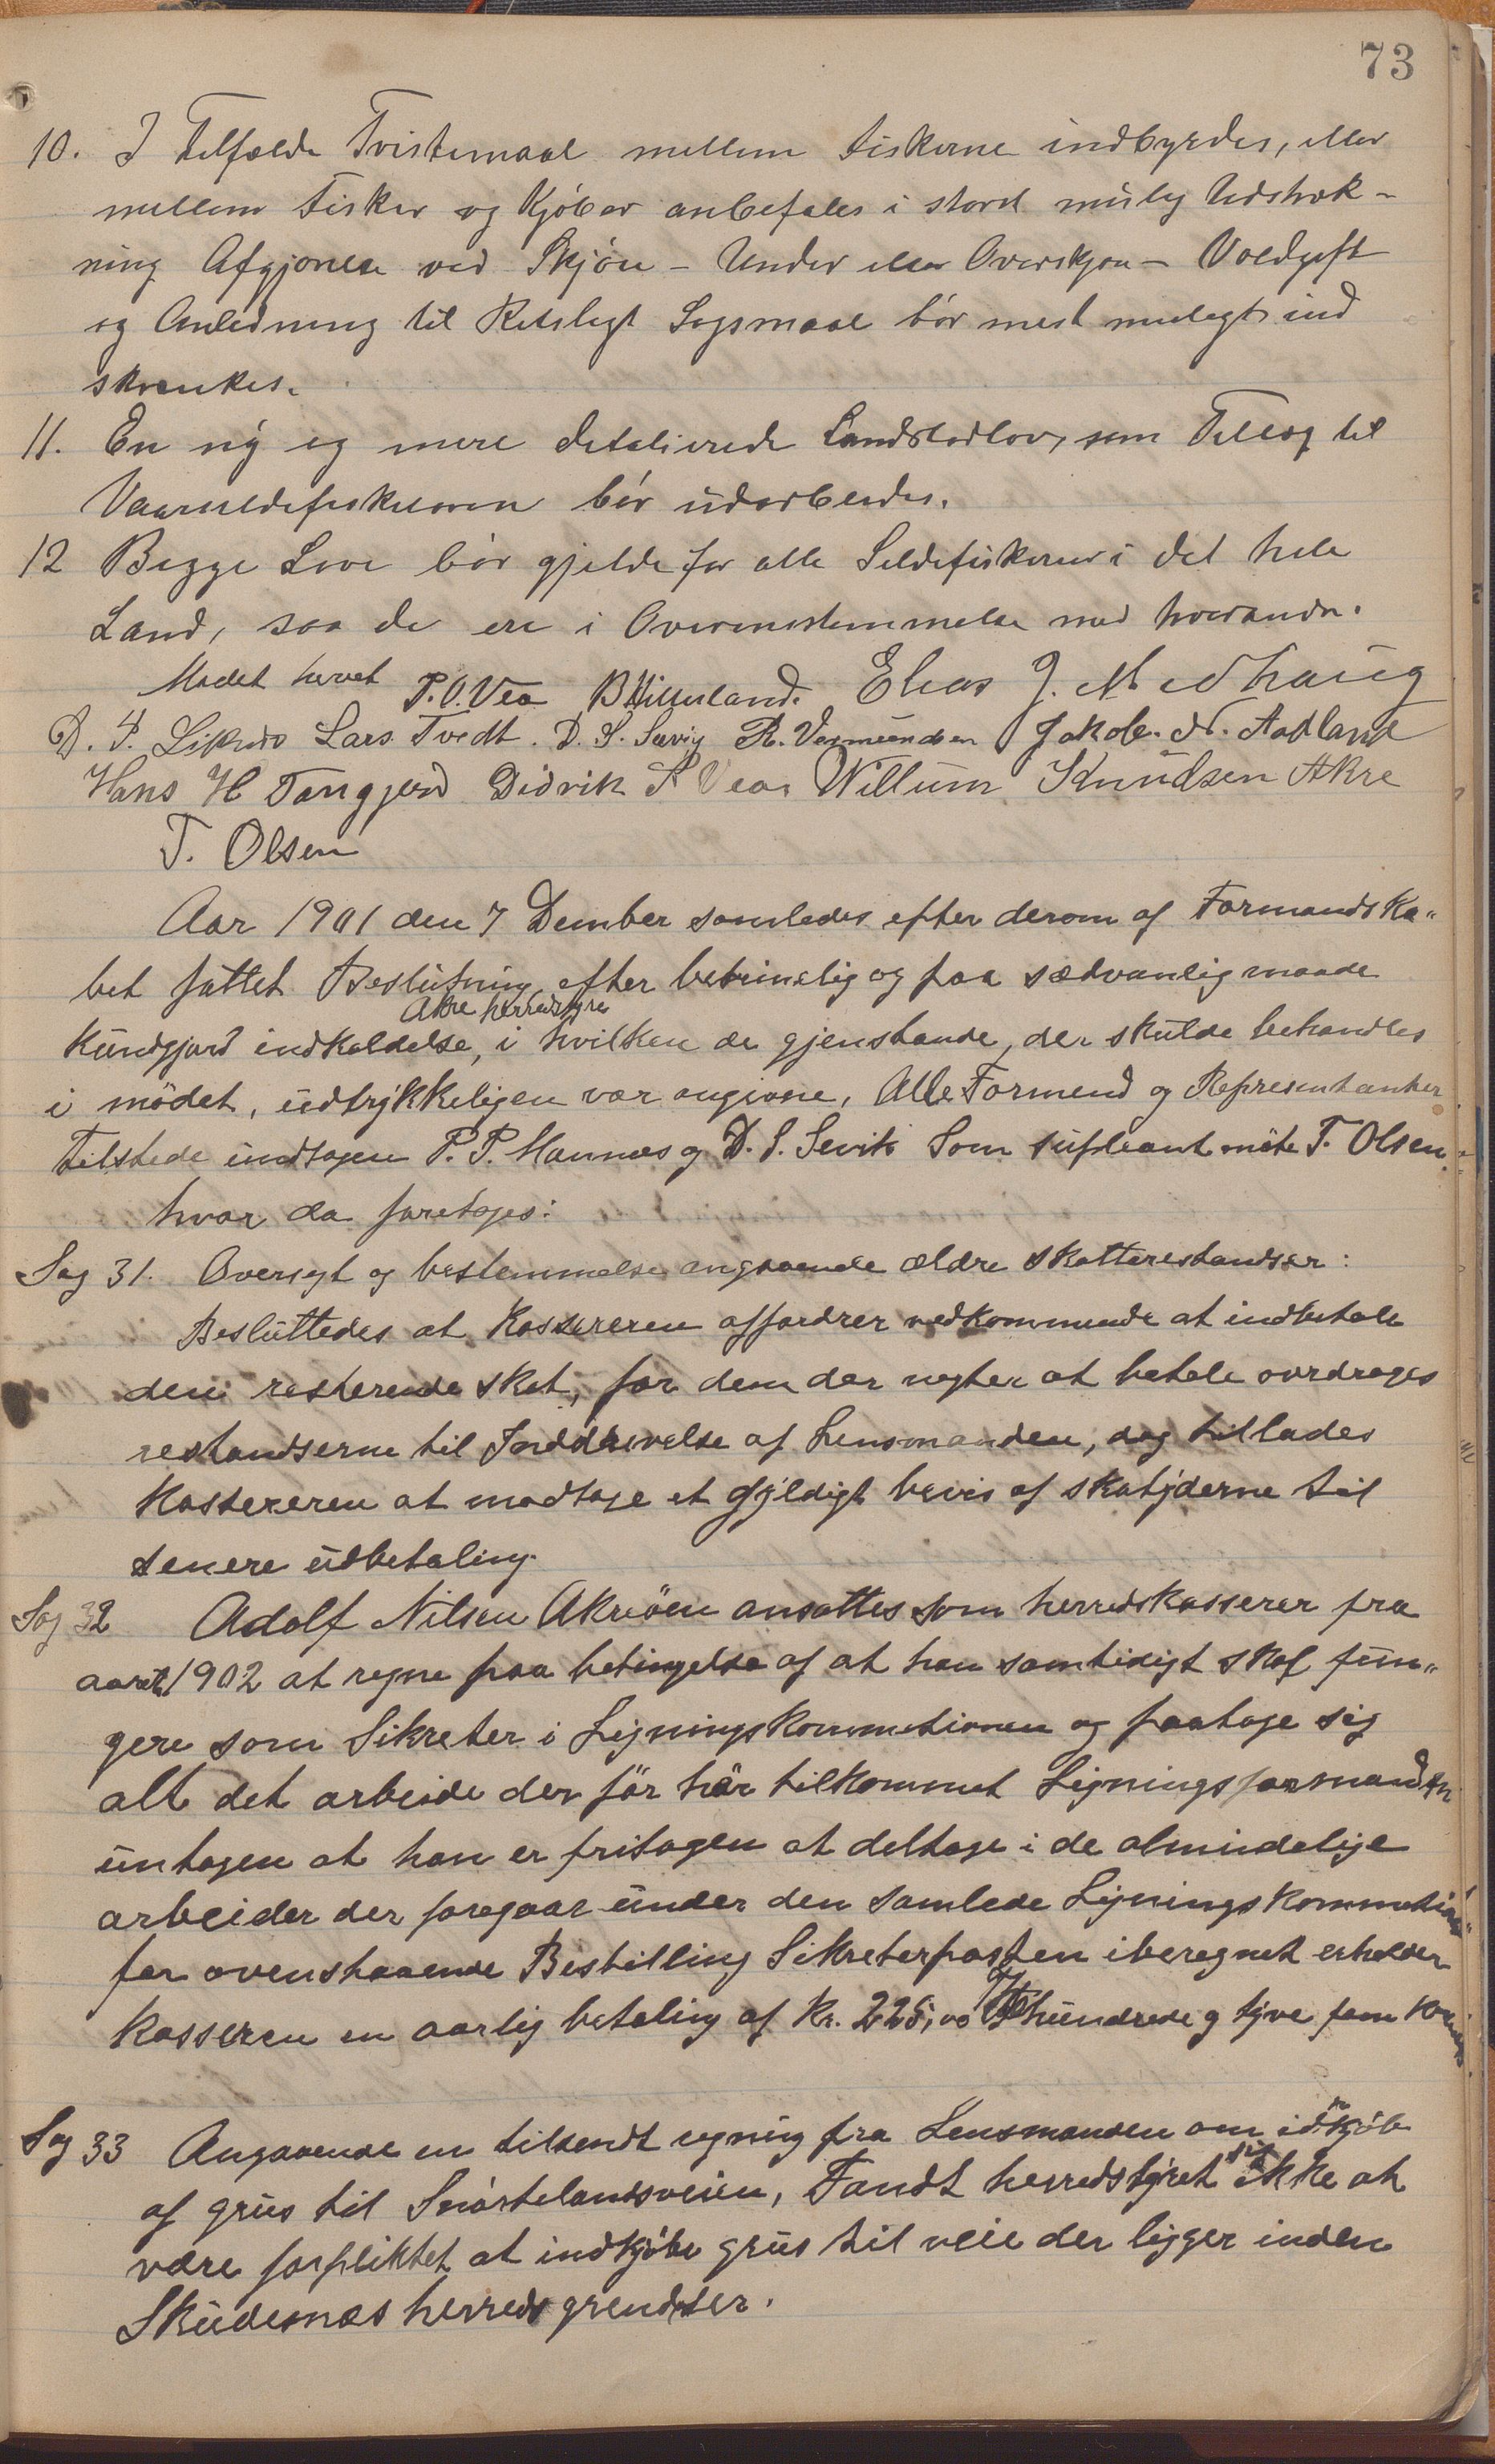 73
10. I Tilfælde Tvistemaal mellem Fiskerne indbyrdes, eller
mellem Fisker og Kjöber anbefales i störst mulig Udstræk-
ning Afgjörelse ved Skjön - Under eller Overskjön - Voldgift
og Anledning til Retsligt Sagsmaal bör mest muligt ind
skrænkes.
11. En ny og mere detalierede Landslodlov, som Tillæg til
Vaarsildefiskeloven bör udarbeides.
12 Begge Love bör gjelde for alle Sildefiskerier i det hele
Land, saa de ere i Overensstemmelse med hverandre.
Mødet hævet P.O. Vea B Hillesland. Elias J. Medhaug
D. P. Liknes Lars Tvedt. D. S. Sævig R. Vermundsen Jakob. N. Aadland
Hans H Tangjerd Didrik P Vea. Willum Knudsen Akre
T. Olsen
Aar 1901 den 7 Dember samledes efter derom af Formandska"
bet fattet Beslutning, efter betimelig og paa sædvanlig maade
Akre herredstyre
Kundgjord indkaldelse, i hvilken de gjenstande, der skulde behandles
i mödet, udtrykkeligen var angivne, Alle Formend og Representanter
tilstede undtagen P. P. Mannes og D. S. Sevik Som supleant möte T. Olsen.
hvor da foretages:
Sag 31. Oversigt og bestemmelse angaaende ældre skatterestandser:
Besluttedes at Kassereren affordrer vedkommende at indbetale
den resterende skat, for dem der negter at betale overdrages
restandserne til Inddrivelse af Lensmanden, dog tillades
Kassereren at modtage et gyldigt bevis af skatyderne til
senere udbetaling.
Sag 32 Adolf Nilsen Akreöen ansattes som herredskasserer fra
aaret 1902 at regne paa betingelse af at han samtidigt skal fun"
gere som Sikreter i Ligningskommetionen og paatage sig
alt det arbeide der för har tilkommet Ligningsformanden
untagen at han er fritagen at deltage i de almindelige
arbeider der foregaar under den samlede Ligningskommetion"
for ovenstaaende Bestilling Sikreterposten iberegnet erholder
kasseren en aarlig betaling af Kr. 225,00 To hundrede og tyve fem kroner
Sag 33 Angaaende en tilsendt regning fra Lensmanden om indkjöb
af grus til Snörtelandsveien, Fandt herredstyret sig ikke at
være forpliktet at indkjöbe grus til veie der ligger inden
Skudesnæs herreds grendser.